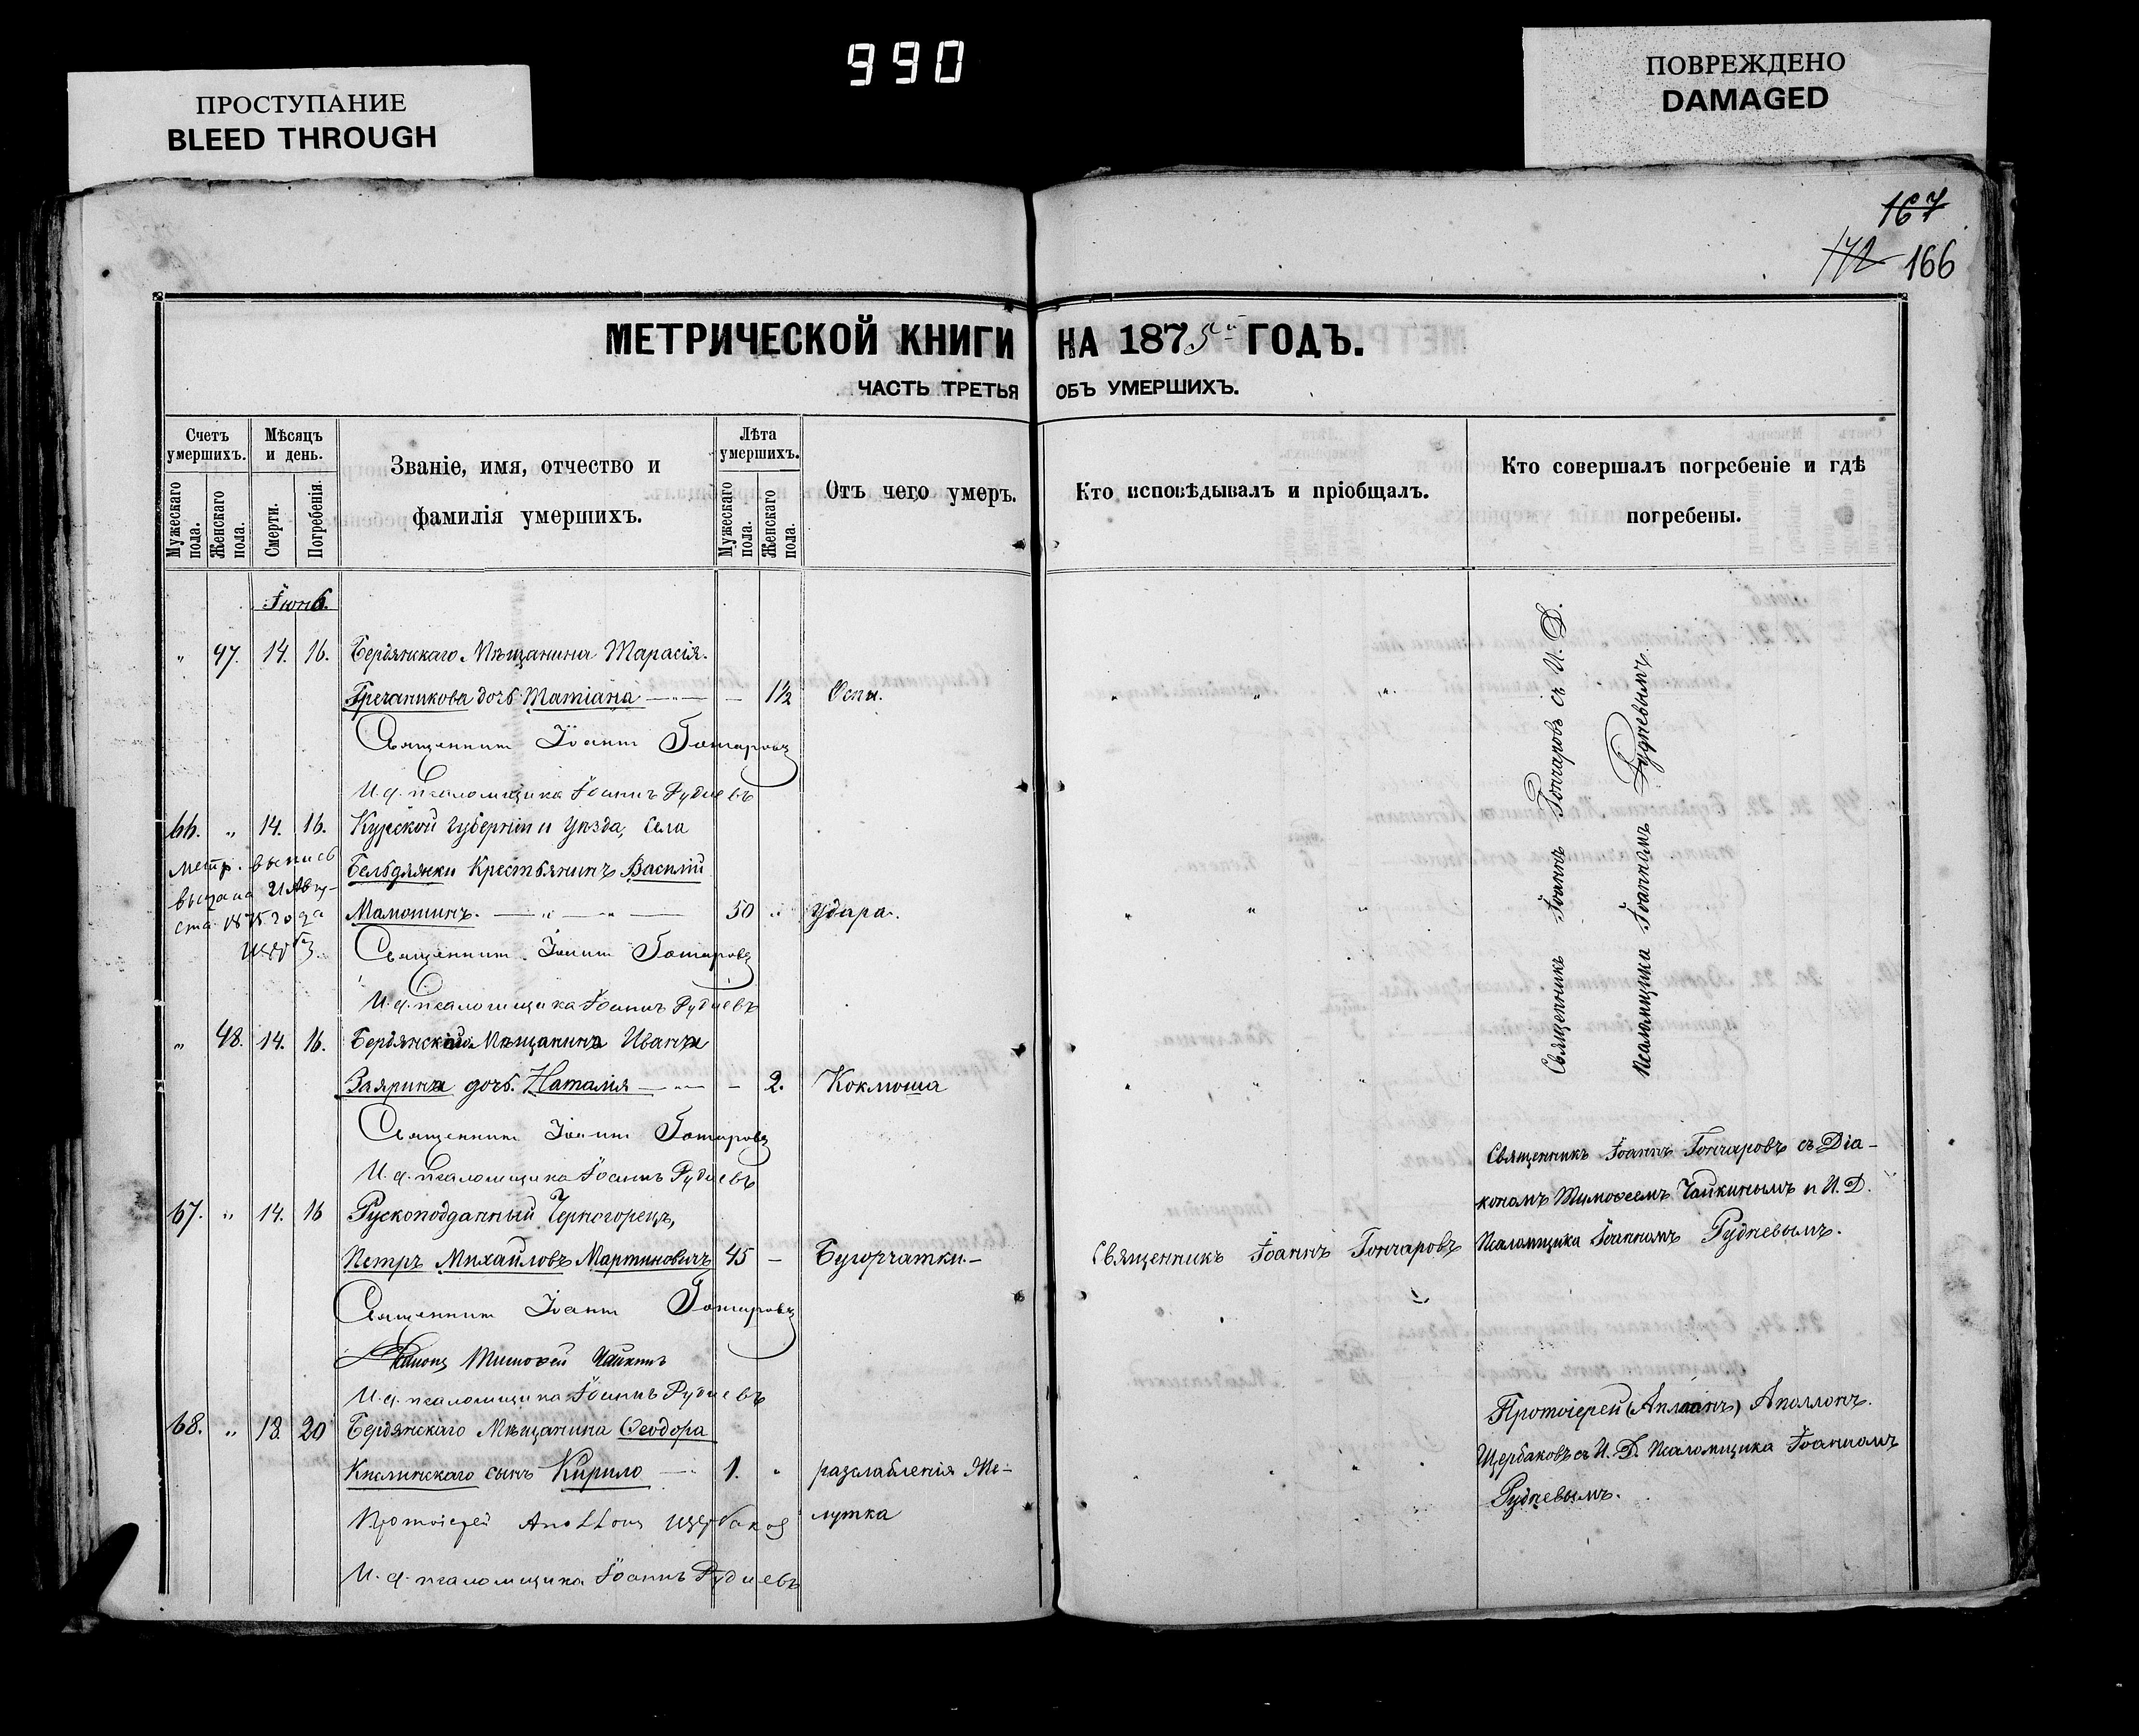 990
ПРОСТУПАНИЕ
BLEED THROUGH
ПОВРЕЖДЕНО
DAMAGED
167
172 166
МЕТРИЧЕСКОЙ КНИГИ НА 1875й ГОДЪ.
ЧАСТЬ ТРЕТЬЯ ОБЪ УМЕРШИХЪ.
Счетъ умершихъ.
Мужескаго пола.
Женскаго пола.
Мѣсяцъ и день.
Смерти.
Погребенія.
Званіе, имя, отчество и
фамилія умершихъ.
Лѣта умершихъ.
Мужескаго пола.
Женскаго пола.
Отъ чего умеръ.
Кто исповѣдывалъ и пріобщалъ.
Кто совершалъ погребеніе и гдѣ
погребены.
Іюнь.
" 47. 14. 16. Бердянскаго Мѣщанина Тарасія
Гречаникова дочь Татіана — " — — 1½ Оспы. " " "
Священникъ Іоаннъ Гончаровъ
И. д. псаломщика Іоаннъ Рудневъ
66. " 14. 16. Курской Губерніи и Уѣзда, Села
Метр. выпись
выдана 21 Авгу-
ста 1875 года
Крестьянинъ Василій
Мамонинъ. — " — " — 50 " Удара. " " "
Священникъ Іоаннъ Гончаровъ
И. д. псаломщика Іоаннъ Рудневъ
" 48. 14. 16. Бердянскаго Мѣщанина Ивана
Заярина дочь Наталія — " — - 2. Коклюша " " "
Священникъ Іоаннъ Гончаровъ
И. д. псаломщика Іоаннъ Рудневъ
Священникъ Іоаннъ Гончаровъ съ И. Д.
Псаломщика Іоанномъ Рудневымъ.
67. " 14. 16 Рускоподданный Черногорецъ,
Петръ Михайловъ Мартиновичъ 45 — Бугорчатки.— Священникъ Іоаннъ Гончаровъ
Священникъ Іоаннъ Гончаровъ съ Діа-
кономъ Тимоѳеемъ Чайкинымъ и И. Д.
Псаломщика Іоанномъ Рудневымъ.
Священникъ Іоаннъ Гончаровъ
Діаконъ Тимоѳей Чайкинъ
И. д. псаломщика Іоаннъ Рудневъ
68. " 18. 20 Бердянскаго Мѣщанина Ѳеодора
Кислинскаго сынъ Кирило — " 1. " разслабленія Же-
лутка " " "
Протоіерей Аполлонъ Щербаковъ
И. д. псаломщика Іоаннъ Рудневъ
Протоіерей Аполлонъ
Щербаковъ съ И. Д. Псаломщика Іоанномъ
Рудневымъ.